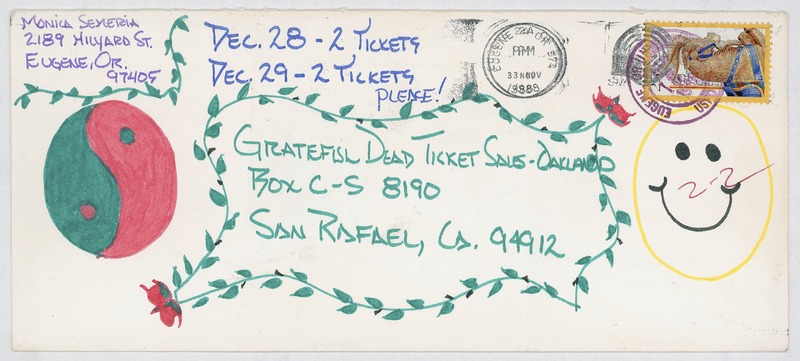 Monica Semeria
2189 Hilyard St.
Eugene, Or.
97405
Dec. 28 - 2 Tickets
Dec. 29 - 2 Tickets
Please!
EUGENE
PM
NOV
1988
EUGENE
Grateful Dead Ticket Sales-Oakland
Box C-S 8190
San Rafael, Ca. 94912
2-2